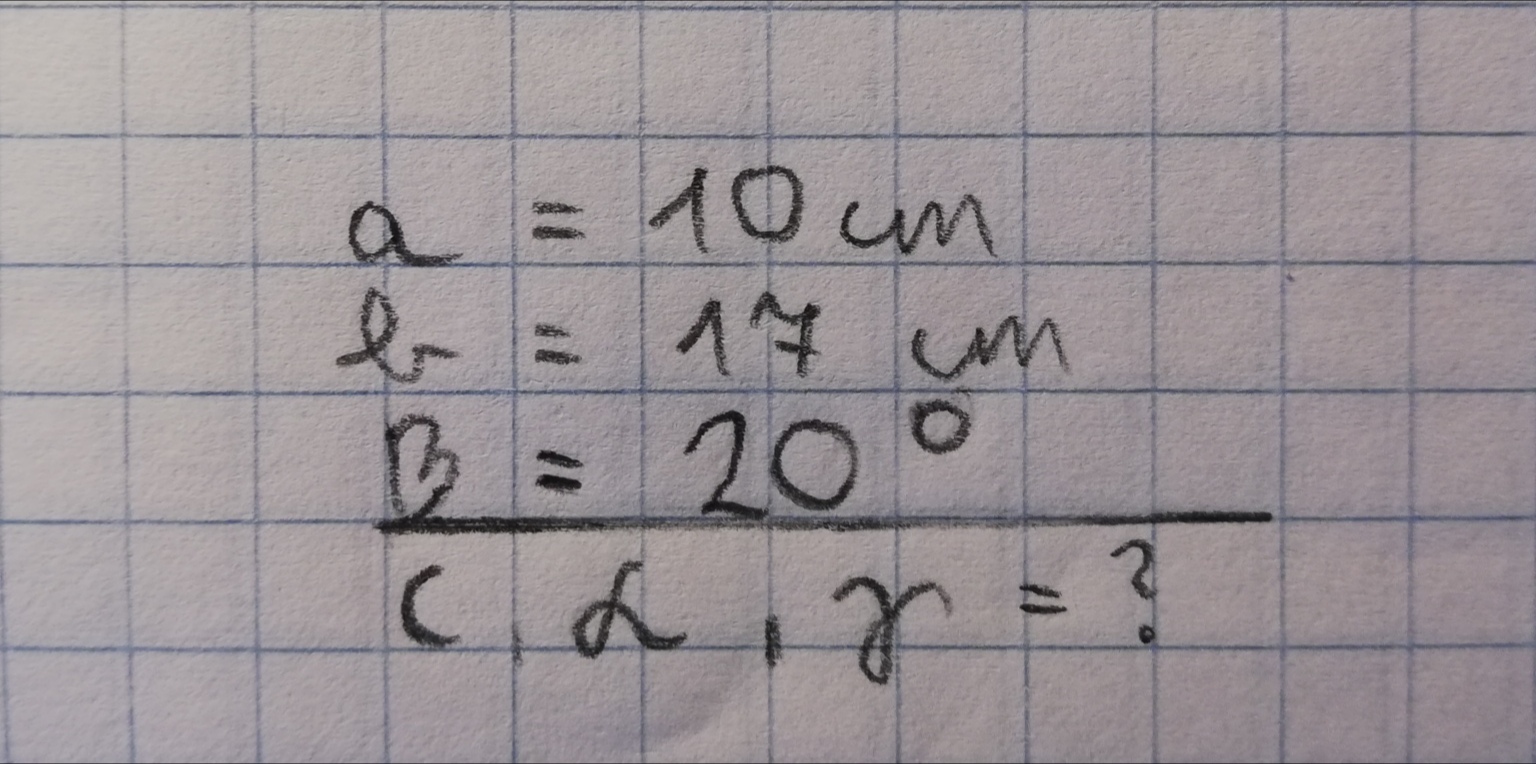 a = 10 cm
b = 17 cm
β = 20°
c, α, γ = ?